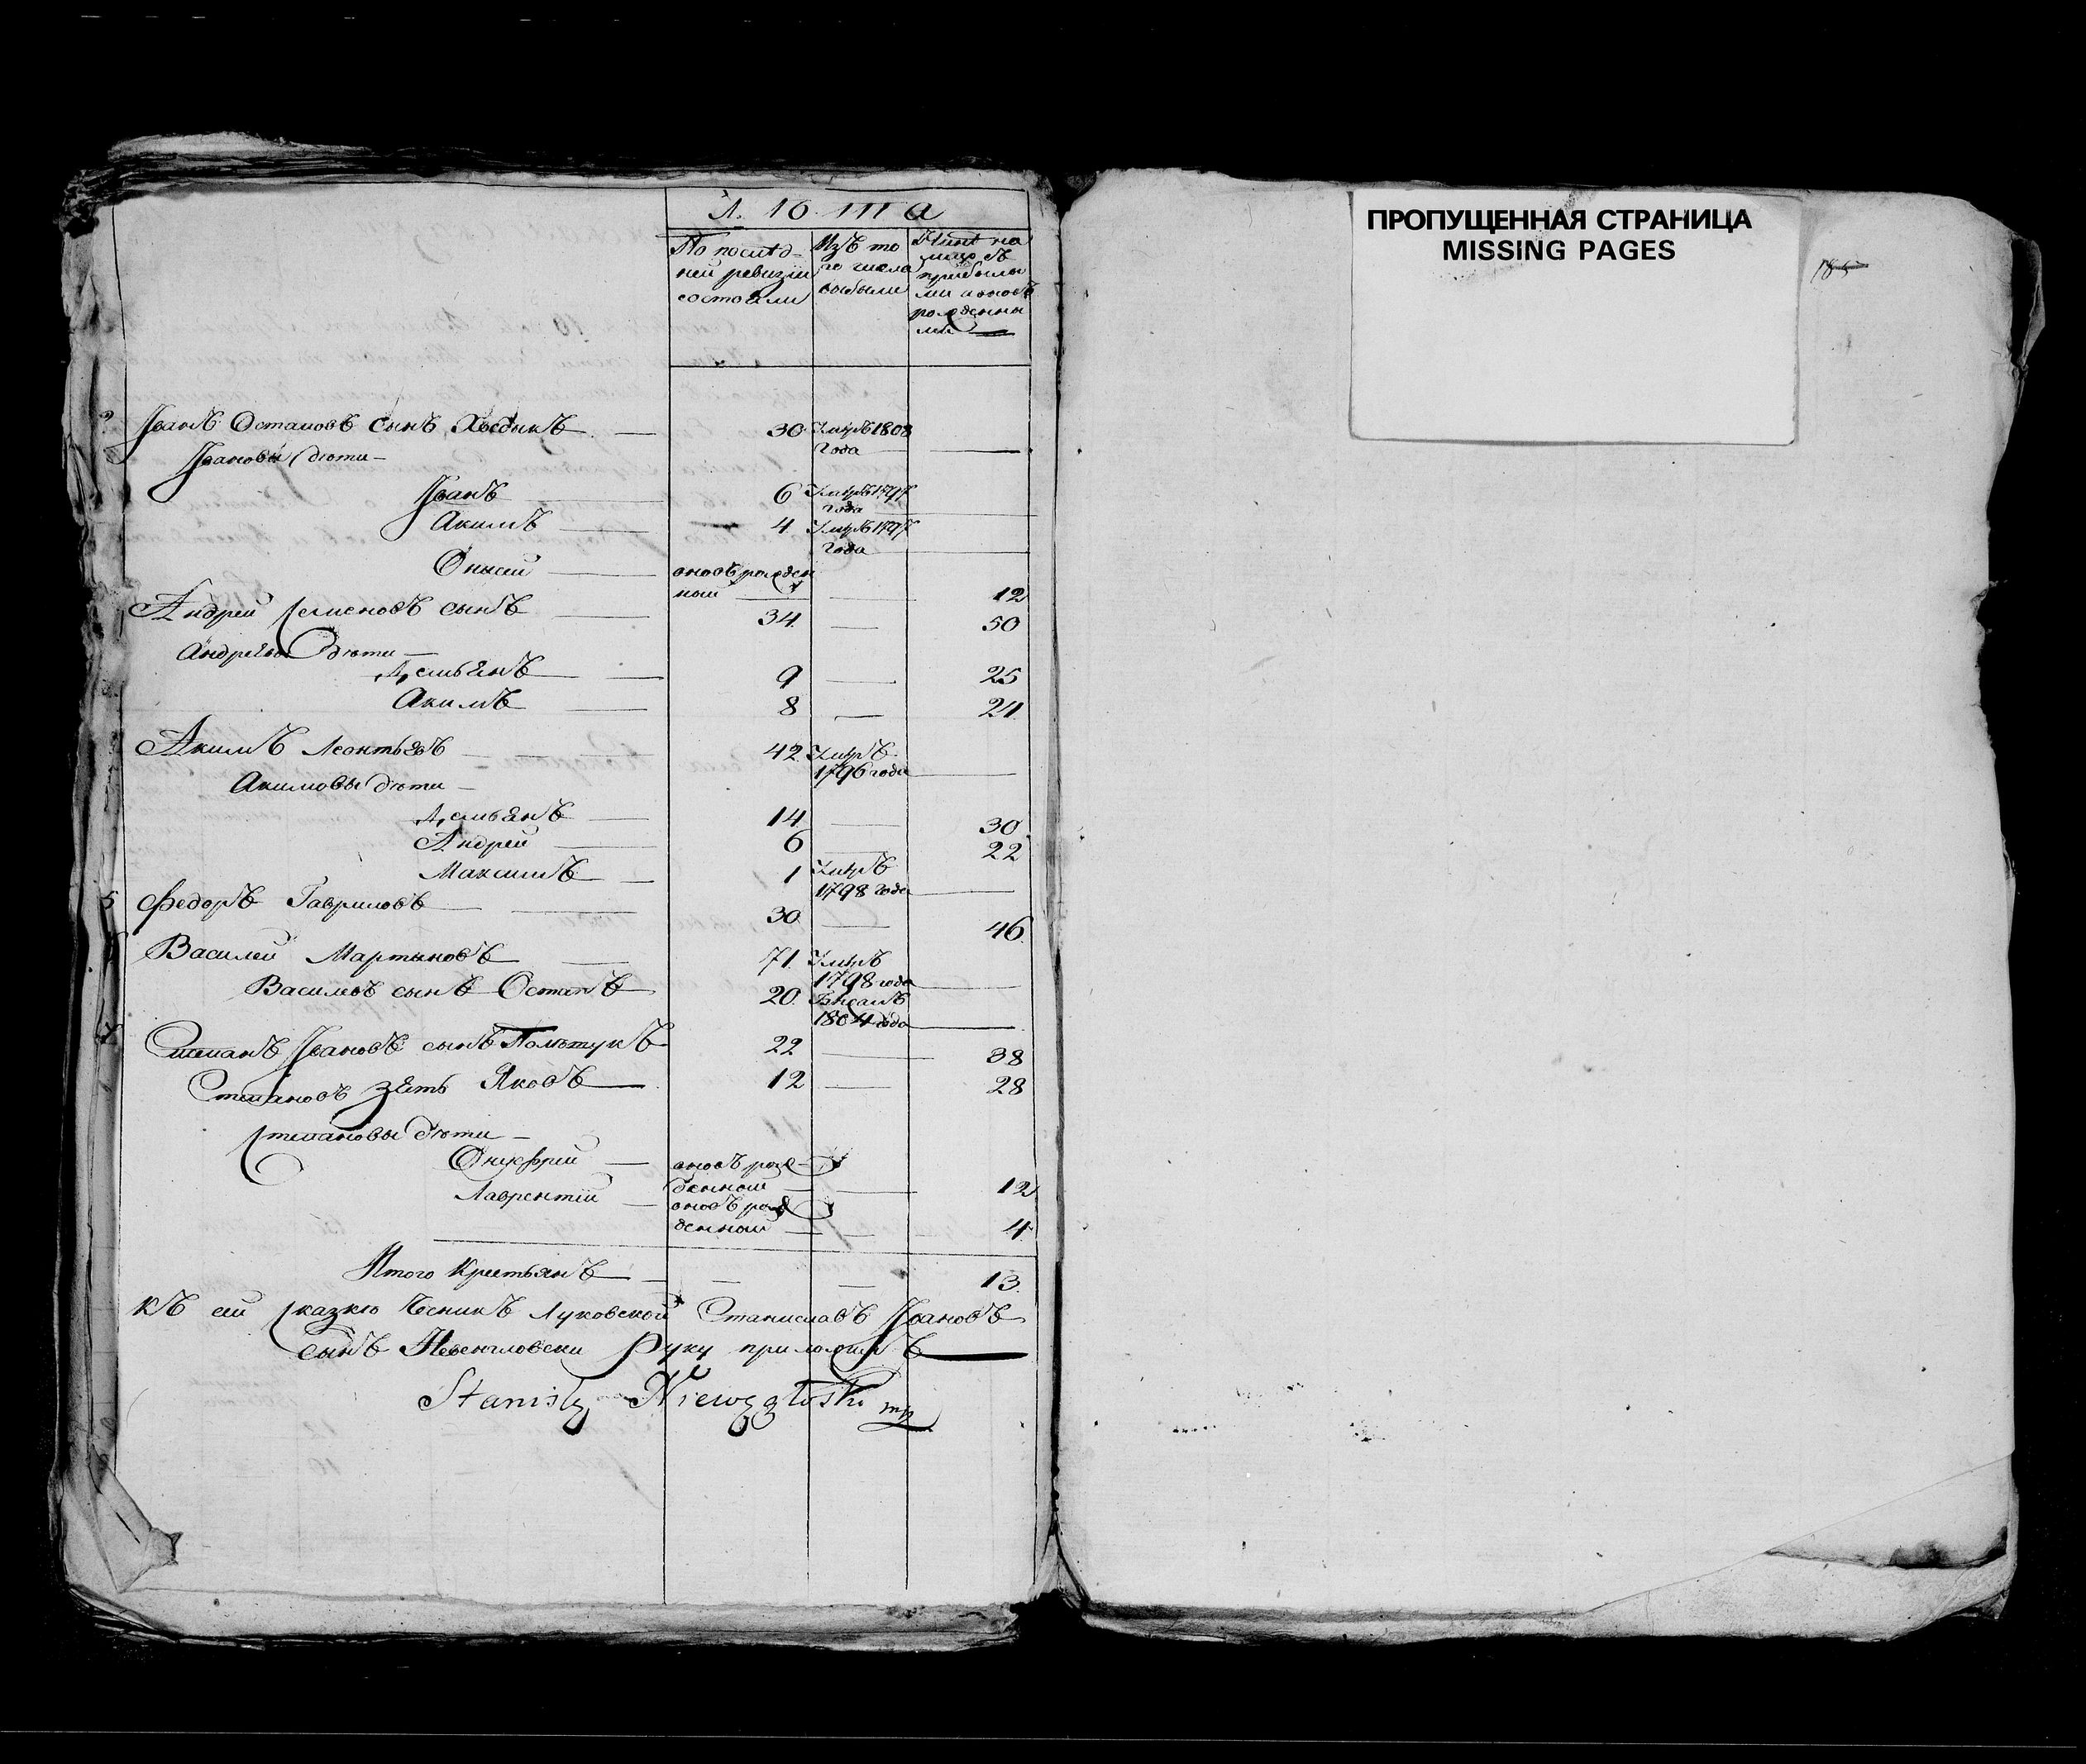 Л ѣ т а
По послѣд-
ней ревизіи
состояли
Изъ то
го числа
выбыли
Нынѣ на
лицо съ
прибылы
ми и вновь
рожденны
ми
Іванъ Остаповъ сынъ — 30 Умръ 1808
года —
Івановы дѣти —
Іванъ — 6 Умръ 1797
года —
Акимъ — 4 Умръ 1797
года —
вновь рожден
ной — 12
Андрей Семеновъ сынъ — 34 — 50
Андреевы дѣти —
Демьянъ — 9 — 25
Акимъ — 8 — 24
Акимъ Леонтьевъ — 42 Умръ
1796 года —
Акимовы дѣти —
Демьянъ — 14 — 30
Андрей — 6 — 22
Максимъ — 1 Умръ
1798 года —
5 Федоръ Гавриловъ — 30 — 46
Василей Мартыновъ — 71 Умръ
1798 года —
Васильевъ сынъ Остапъ — 20
1804 года —
Степанъ Івановъ сынъ — 22 — 38
Степановъ зять Яковъ — 12 — 28
Степановы дѣти —
Онуфрей — вновь рож-
денной — 12
Лаврентій — вновь рож
денной — 4
Итого крестьянъ — 13
Къ сей сказкѣ Луковской Станиславъ Івановъ
сынъ руку приложилъ —
ПРОПУЩЕННАЯ СТРАНИЦА
MISSING PAGES